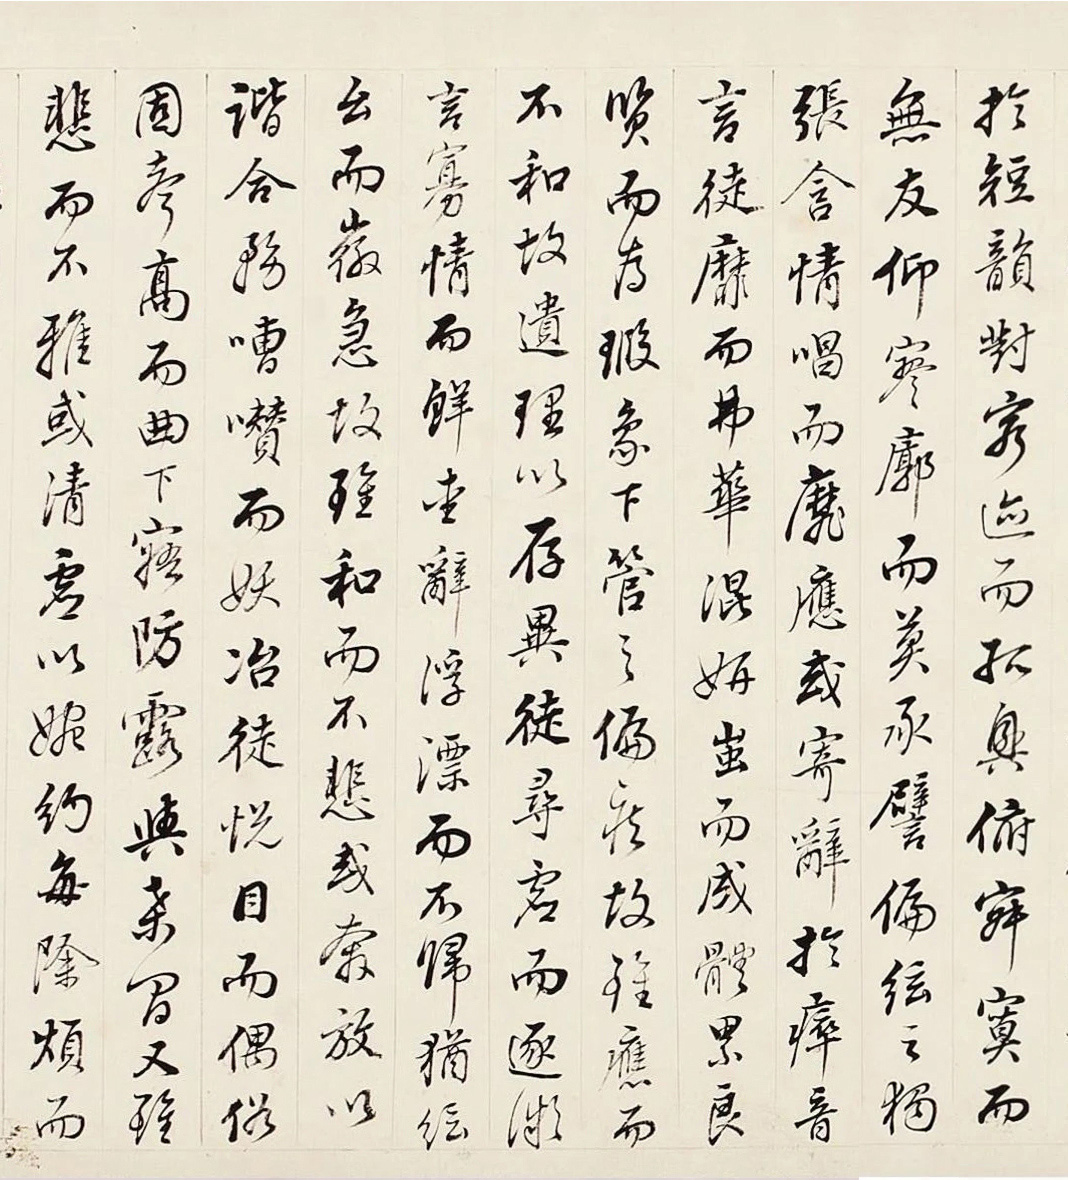 於短韻對窮迹而孤興俯寂寞而
無友仰寥廓而莫承譬偏絃之獨
張含情唱而靡應或寄辭於瘁音
言徒靡而弗華混妍蚩而成體累良
質而為瑕象下管之偏疾故雖應而
不和故遺理以存異徒尋虛而逐微
言寡情而鮮愛辭浮漂而不歸猶絃
么而徽急故雖和而不悲或奔放以
諧合務嘈囋而妖冶徒悅目而偶俗
固聲高而曲下寤防露與桑間又雖
悲而不雅或清虛以婉約每除煩而